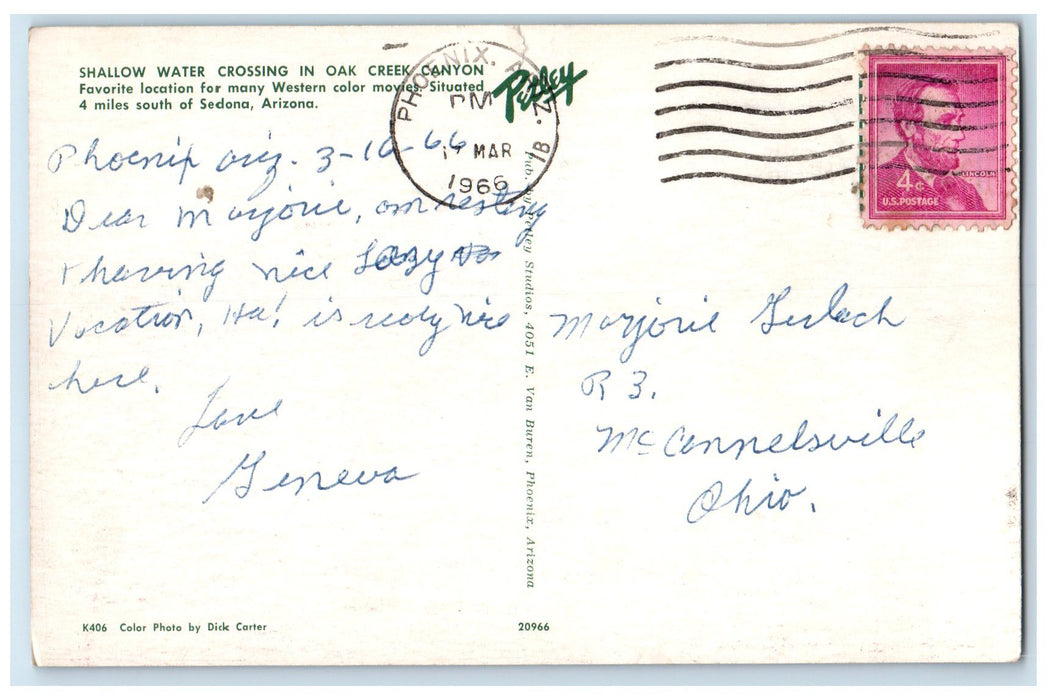 SHALLOW WATER CROSSING IN OAK CREEK CANYON
Favorite location for many Western color movies. Situated
4 miles south of Sedona, Arizona.
Petley
PHOENIX, ARIZ.
PM
17 MAR
1966
1B
LINCOLN
4¢
U.S. POSTAGE
Phoenix Ariz. 3-16-66
Dear Marjorie, am resting
& having nice Lazy
Vacation, Ha! is really nice
here.
Love
Geneva
Pub. by Petley Studios, 4051 E. Van Buren, Phoenix, Arizona
Marjorie Gerlach
R 3.
McConnelsville
Ohio.
K406 Color Photo by Dick Carter
20966